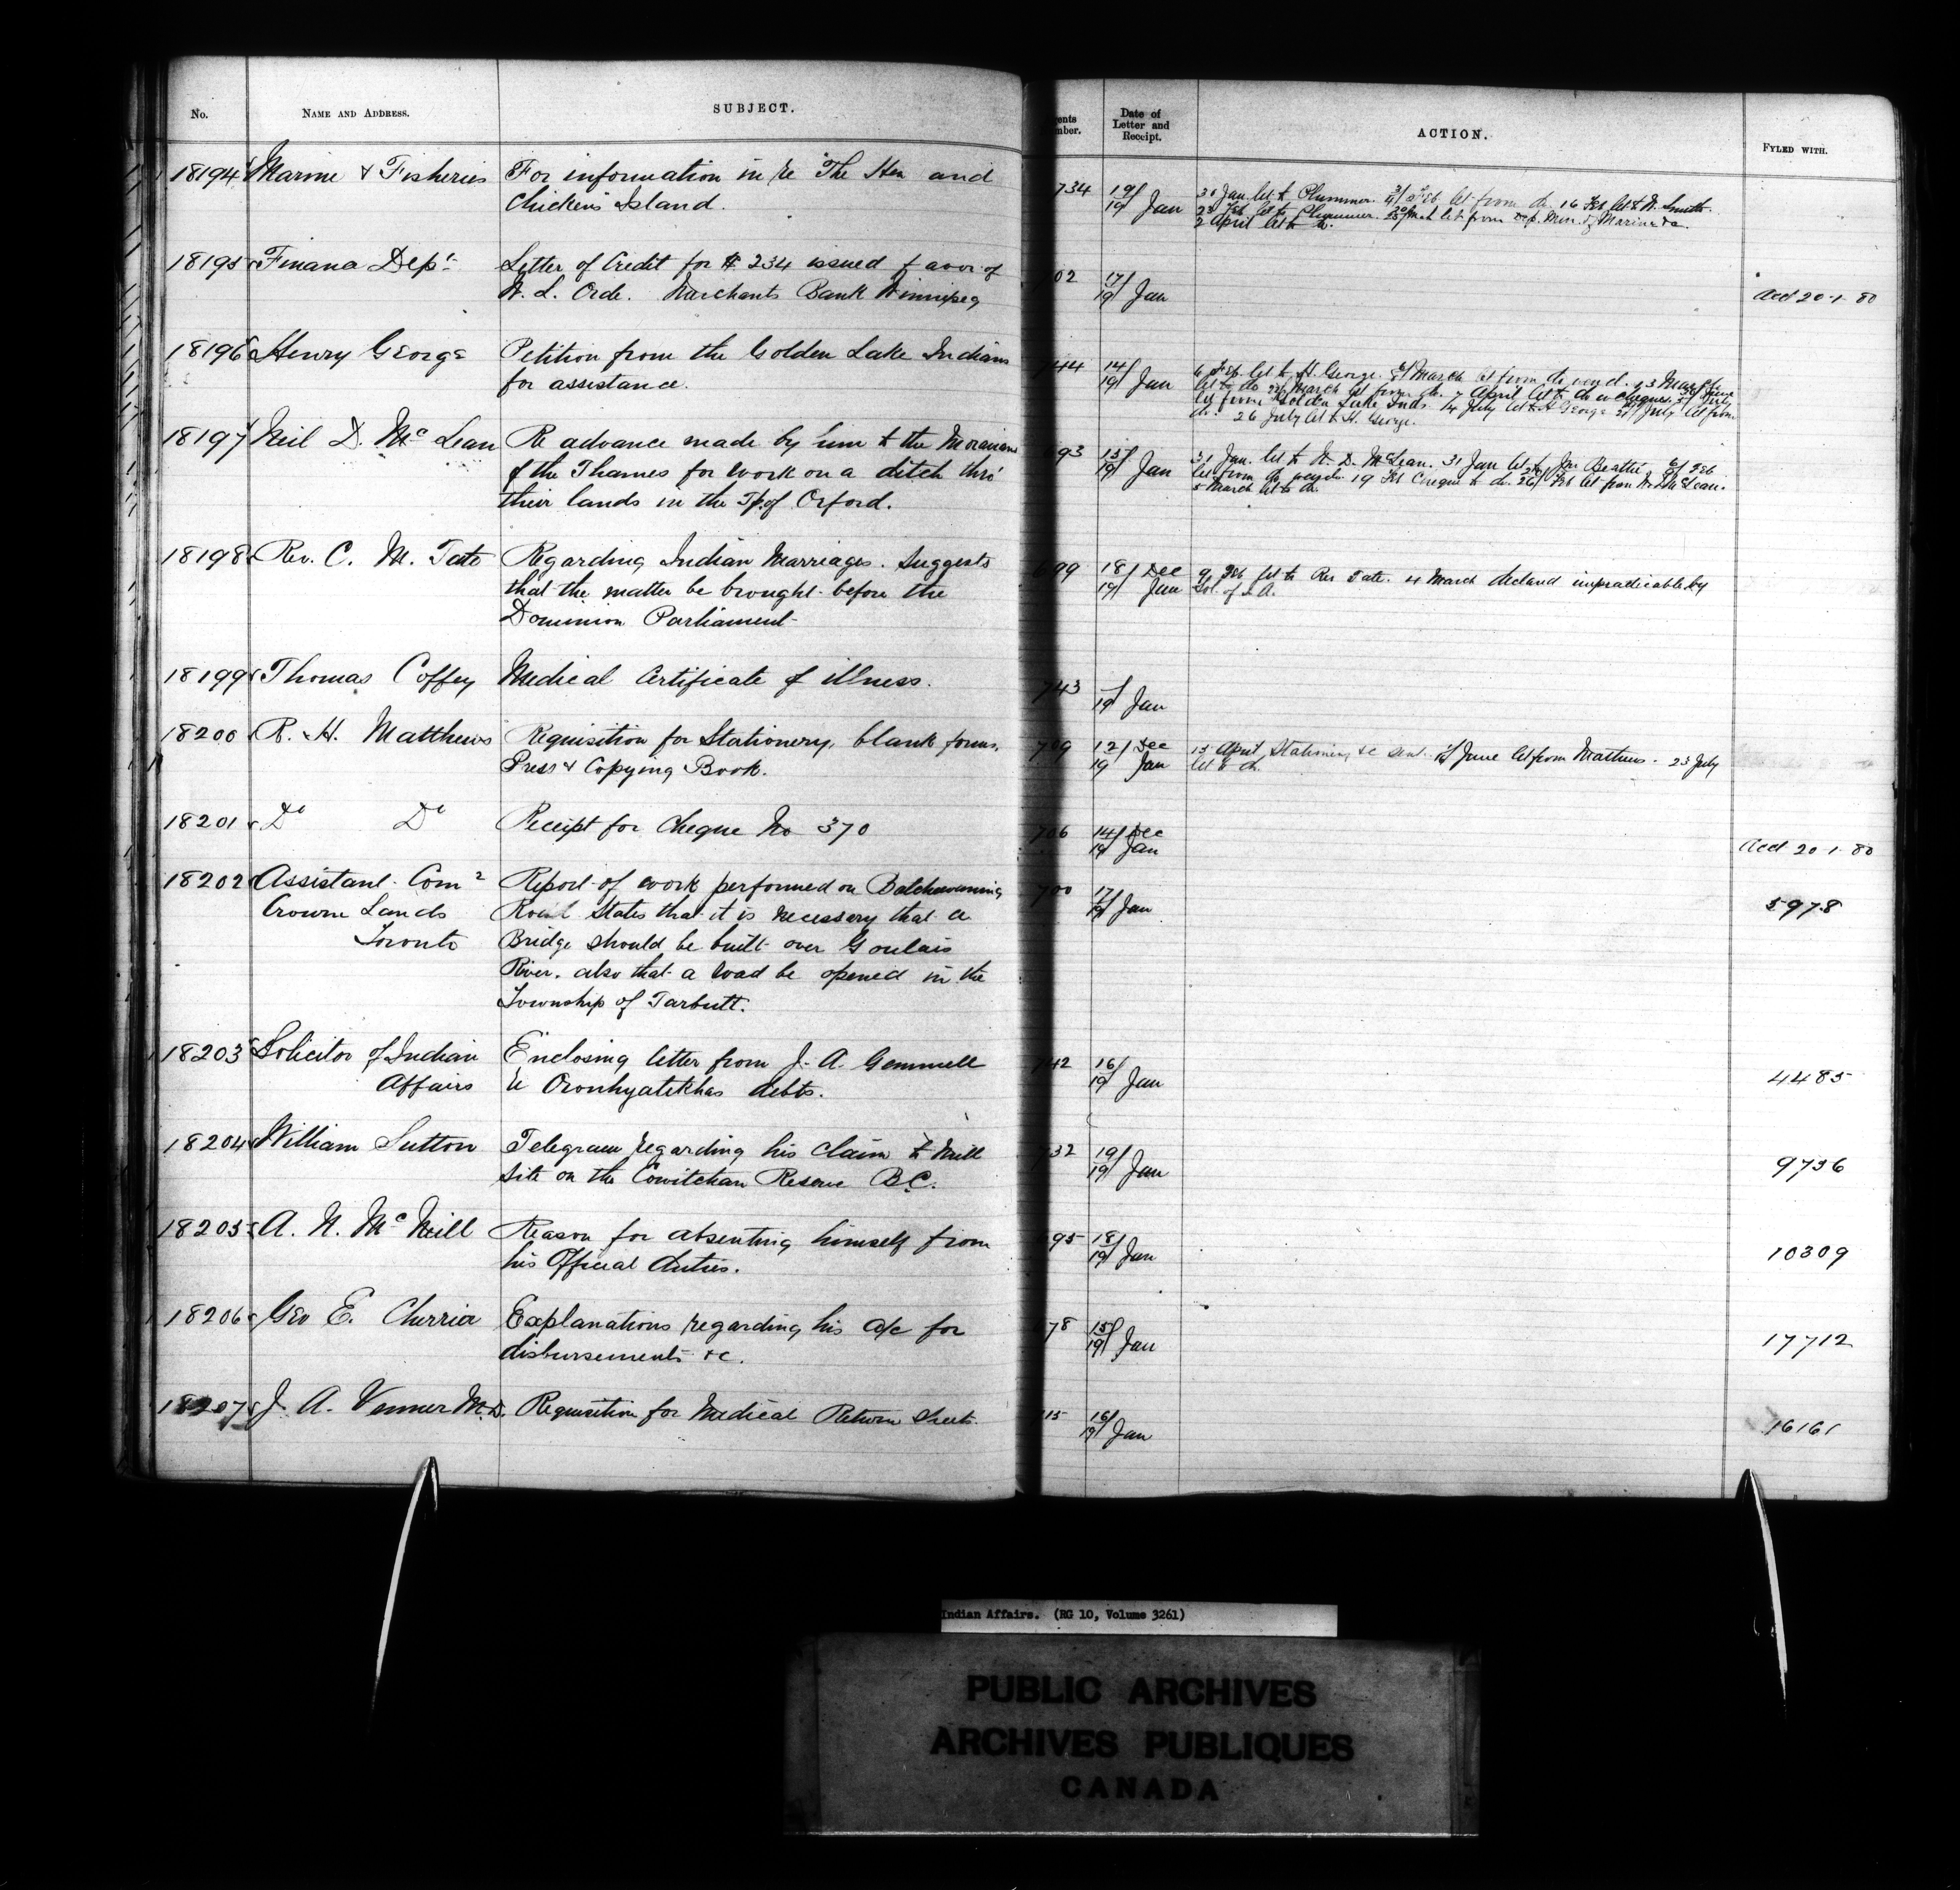 No. NAME AND ADDRESS. SUBJECT.
18194 Marine & Fisheries For information in re "The Hen and
Chickens Island.
18195 Finance Dept Letter of Credit for $234 issued favor of
W. L. Orde. Merchants Bank Winnipeg
18196 Henry George Petition from the Golden Lake Indians
for assistance.
18197 Neil D. McLean Re advance made by him to the Moravians
of the Thames for work on a ditch thro'
their lands in the Tp. of Orford.
18198 Rev. C. M. Tate Regarding Indian Marriages. Suggests
that the matter be brought before the
Dominion Parliament
18199 Thomas Coffey Medical Certificate of illness.
18200 R. H. Matthews Requisition for Stationery, blank forms,
Press & Copying Book.
18201 Do Do Receipt for Cheque No 370
18202 Assistant Comr Report of work performed on Batchewaning
Crown Lands Road States that it is necessary that a
Toronto Bridge should be built over Goulais
River. also that a road be opened in the
Township of Tarbutt.
18203 Solicitor of Indian Enclosing letter from J. A. Gemmell
Affairs re Oronhyatekhas debts.
18204 William Sutton Telegram regarding his claim to Mill
site on the Cowitchan Reserve B.C.
18205 A. N. McNeill Reason for absenting himself from
his Official duties.
18206 Geo E. Cherrier Explanations regarding his a/c for
disbursements &c.
18207 J. A. Venner M.D. Requisition for Medical Return Sheets.
ents mber. Date of Letter and Receipt. ACTION. FYLED WITH.
734 19/19 Jan 30 Jan. let to Plummer. Feb let from do. 16 Feb let to W. Smith.
23 Feb let to Plummer. March let from Dep. Min. of Marine &c.
2 April let to do.
02 17/19 Jan Acd 20-1-80
744 14/19 Jan 6 Feb. let to H. George. March let from do
let to do March let from do. 7 April let to do
let from Golden Lake Inds. 14 July let to H George July let from
do. 26 July let to H. George.
693 15/19 Jan 31 Jan. let to N. D. McLean. 31 Jan let to Jno Beattie. Feb
let from do 19 Feb Cheque to do. 26/ Feb let from N. D. McLean.
5 March let to do.
699 18/ Dec 9 Feb let to Rev Tate. 4 March declared impracticable by
19/ Jan Sol. of I. A.
743 /19 Jan
709 12/ Dec 15 April Stationery &c sent. June let from Mathews. 23 July
19 Jan let to do.
706 14/ Dec
19/ Jan Acd 20-1-80
700 17/19 Jan 5978
742 16/19 Jan 4485
732 19/19 Jan 9736
695 18/19 Jan 10309
78 15/19 Jan 17712
15 16/19 Jan 16161
Indian Affairs. (RG 10, Volume 3261)
PUBLIC ARCHIVES
ARCHIVES PUBLIQUES
CANADA